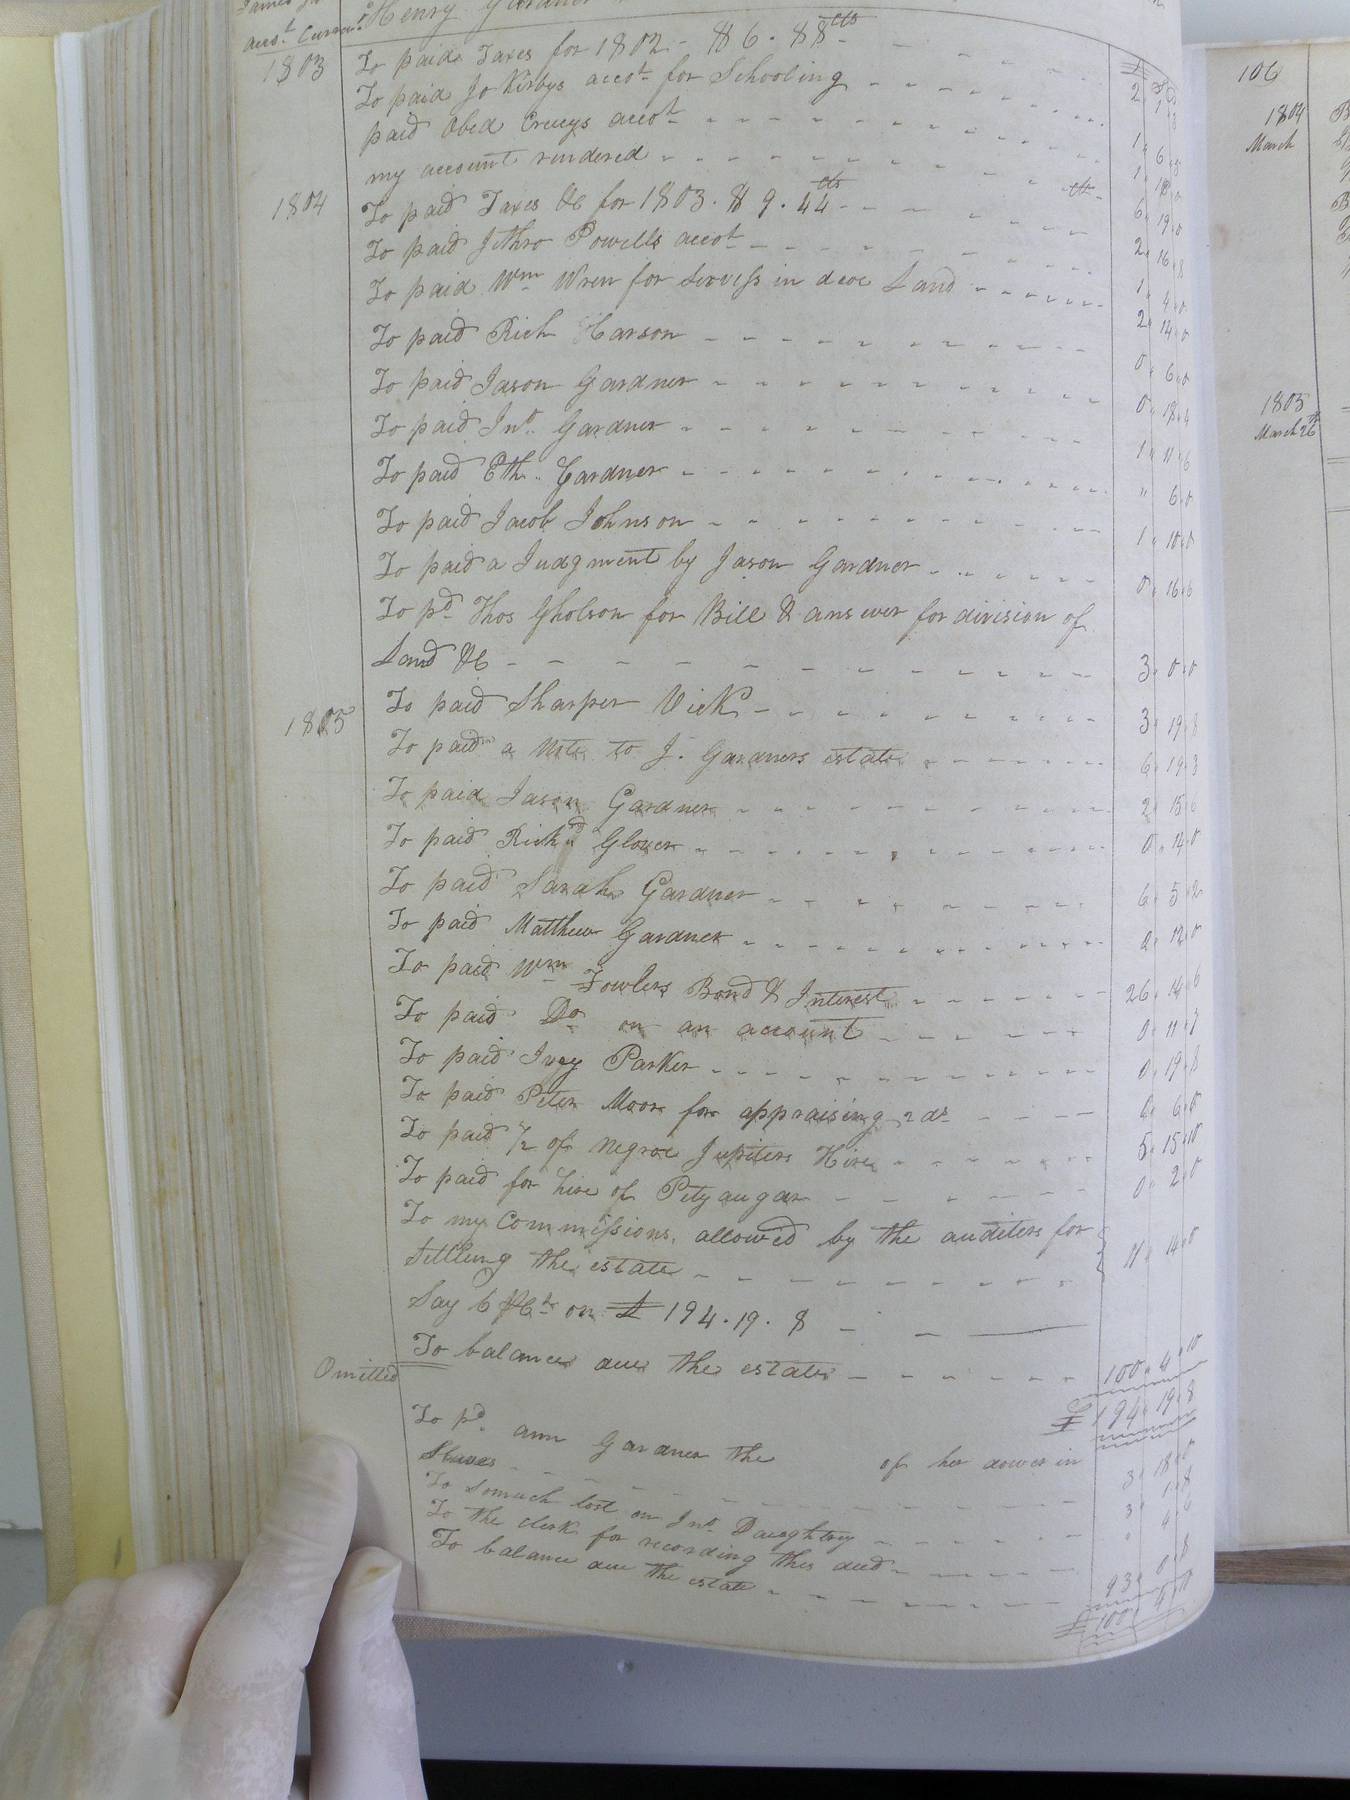 acct Curra
Henry Gardner
1803 To paid Taxes for 1802 - $ 6 . 88 cts 2
To paid Jo Kirbys accot for Schooling
paid Obed Creecys accot 1 6
my account rendered 1
1804 To paid Taxes &c for 1803 . $ 9 . 44 cts 6 19 0
To paid Jethro Powells accot 2 16 8
To paid Wm Wren for in Land 1 4 0
To paid Rich Carson 2 14 0
To paid Jason Gardner 0 6 0
To paid Jno Gardner 0 18 4
To paid Eth. Gardner 1 11 6
To paid Jacob Johnson " 6 0
To paid a Judgment by Jason Gardner 1 10 0
To pd Thos Gholson for Bill & answer for division of 0 16 6
Land &c 3 0 0
1805 To paid Sharper Vick 3 19 8
To paid a Note to J. Gardners estate 6 19 3
To paid Jason Gardner 2 15 6
To paid Richd Glover 0 14 0
To paid Sarah Gardner 6 5 2
To paid Matthew Gardner 0 12 0
To paid Wm Fowlers Bond & Interest 26 14 6
To paid Do on an account 0 11 3
To paid Ivey Parker 0 19 8
To paid Peter Moore for appraising 2 ds 6 0
To paid 1/2 of negroe Jupiters Hire 5 15 10
To paid for hire of Petyaugar 0 2 0
To my Commissions, allowed by the auditers for
Settling the estate 11 14 0
Say 6 on £ 194 . 19 . 8
To balance due the estate 100 4 10
£ 194 19 8
Omitted To pd ann Gardner the of her dower in
Slaves 3 18
To somuch lost on Jno Daughtrey 3 1 8
To the clerk for recording this deed 4
To balance due the estate 93 0 8
£ 100 4 10
106
1804
March
1805
March 26th